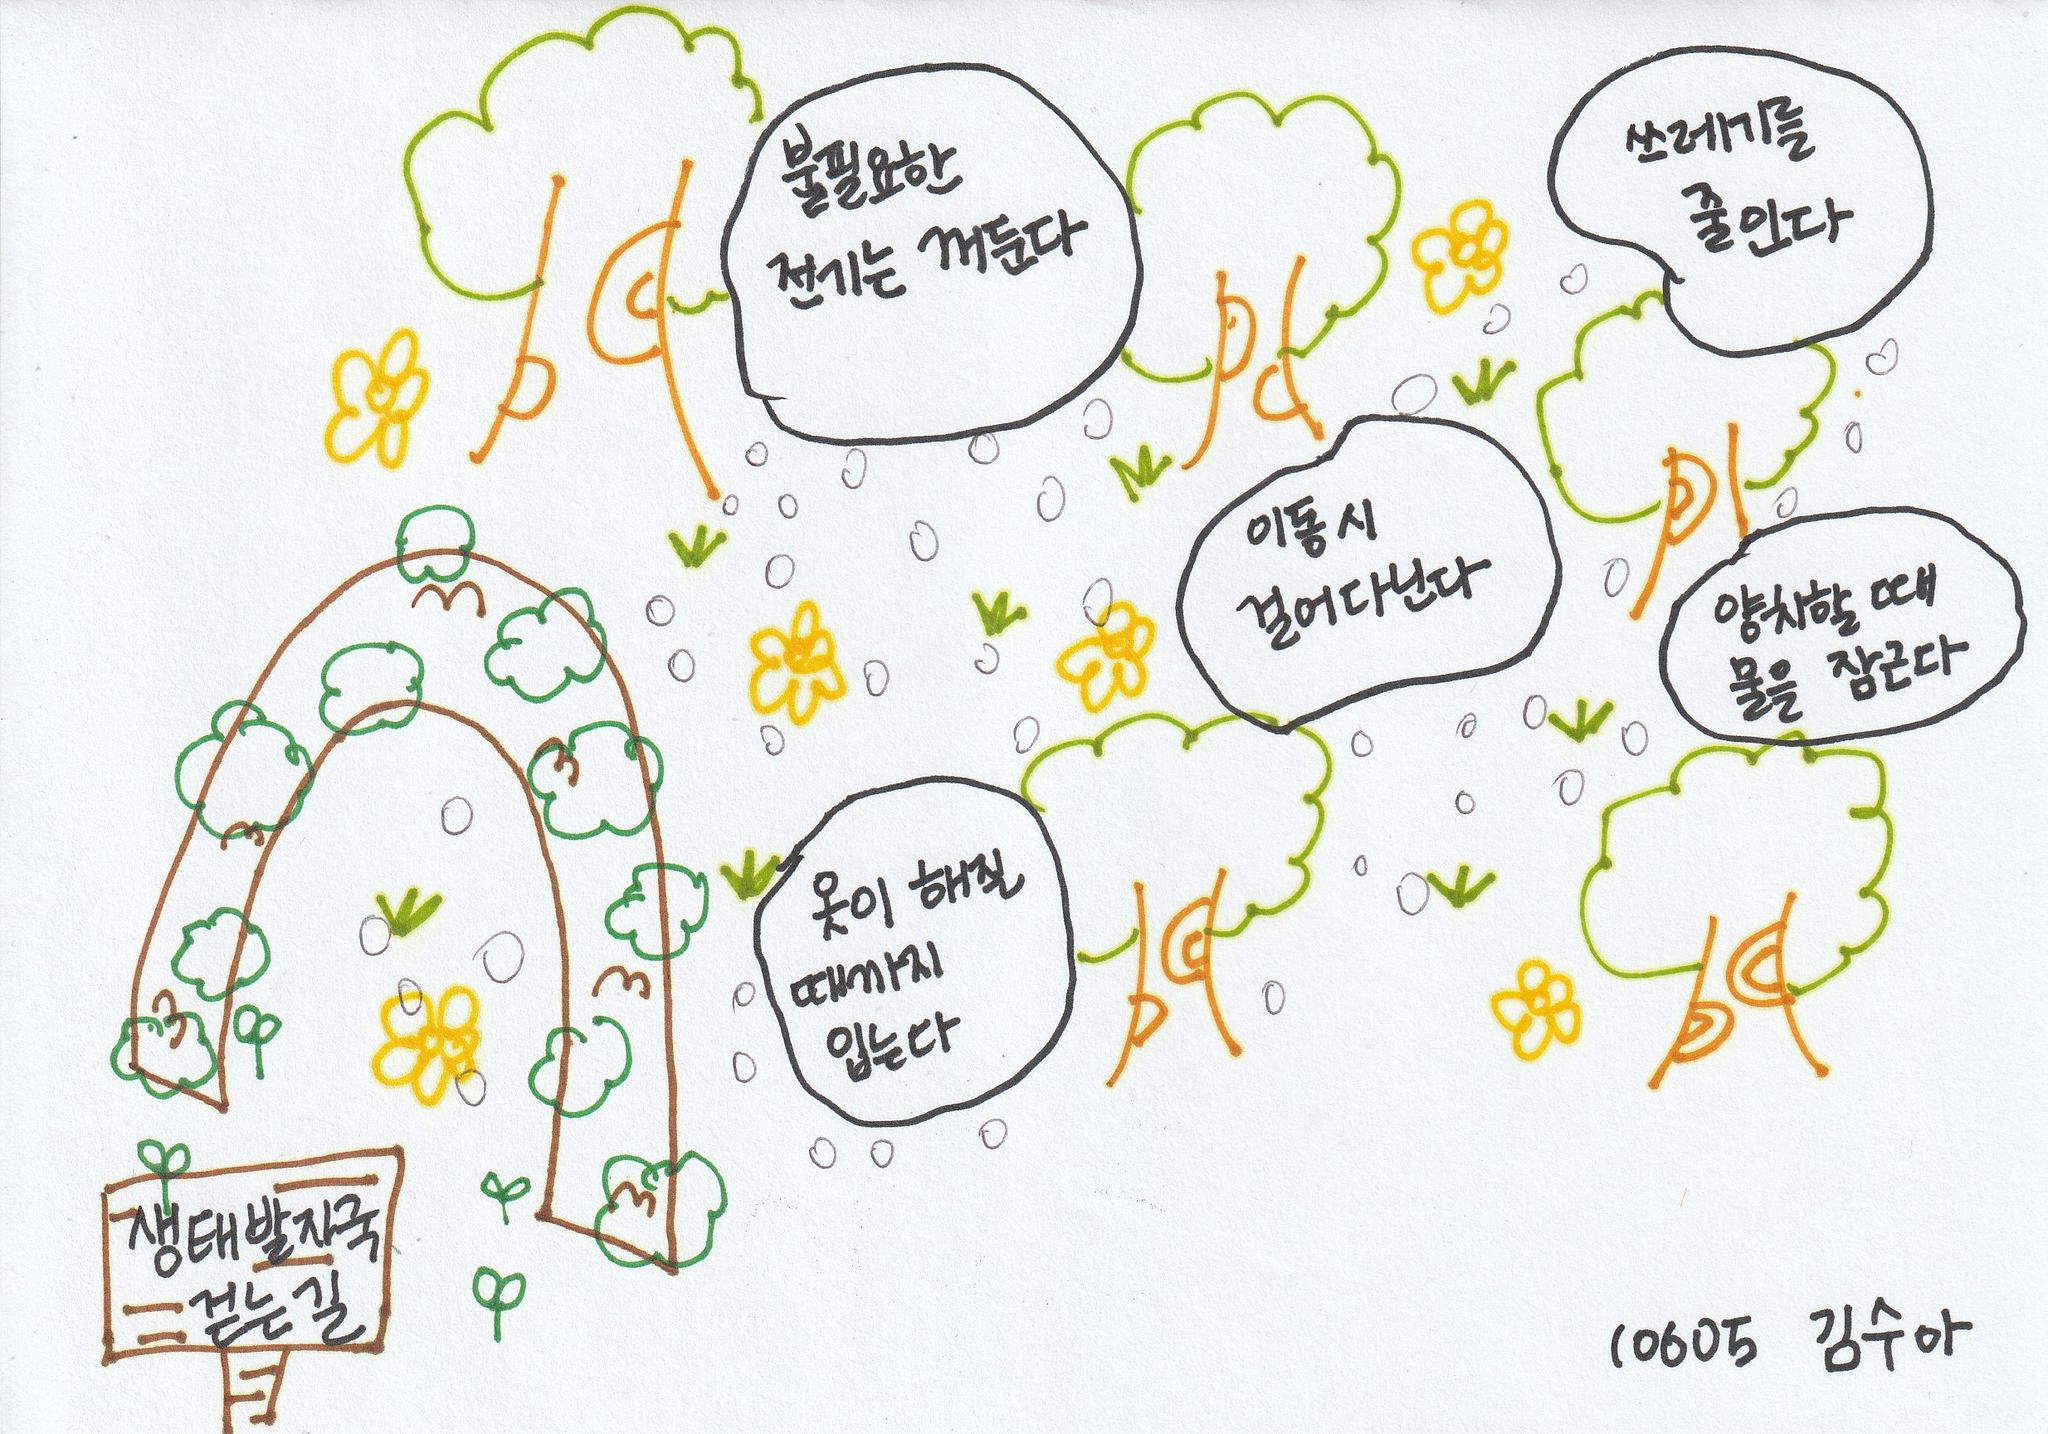 불필요한
전기는 꺼둔다
쓰레기를
줄인다
이동시
걸어다닌다
양치할 때
물을 잠근다
옷이 해질
때까지
입는다
생태발자국
걷는길
10605 김수아